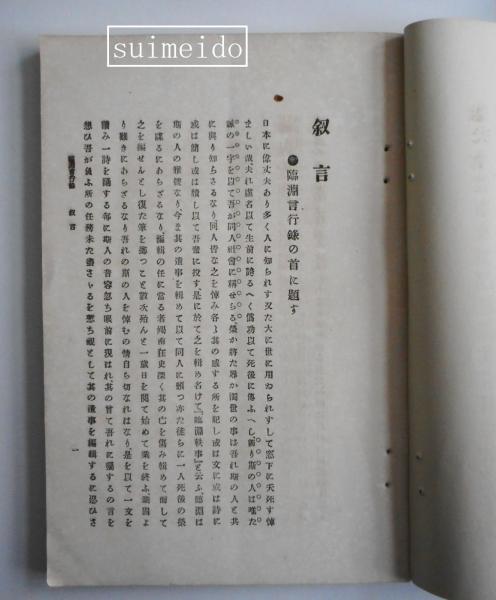 suimeido
叙言
●臨淵言行錄の首に題す
日本に偉丈夫あり多く人に知られす又た大に世に用ねられすして窓下に夭死す悼
ましい哉夫れ虛名以て生前に誇るへく僞功以て死後に傳ふへし獨り斯の人は唯た
誠の一字を以て吾が同人社會に稱せらる榮か將た辱か濁世の事は吾れ斯の人と共
に與り知らさるなり同人皆な之を悼み各〻其の感する所を記し或は文に或は詩に
或は簡し或は牘し以て吾輩に投す是に於て之を輯め名けて『臨淵軼事』と云ふ、臨淵は
斯の人の雅號なり、今ま其の遺事を輯めて以て同人に頒つ亦た徒らに一人死後の榮
を謀るにあらざるなり、編輯の任に當る者 南狂史深く其の亡を傷み輯めて而して
之を編せんとし復た筆を擲つこと數次殆んと一歲日を閱て始めて業を終ふ、
り難きにあらざるなり吾れの斯の人を悼むの情自ら切なれはなり、是を以て一文を
讀み一詩を誦する每に斯人の音容忽ち眼前に現はれ其の曾て吾れに囑するの言を
想ひ吾が負ふ所の任務未た盡さゝるを愧ち 然として其の遺事を編輯するに忍ひさ
臨淵言行錄 叙言
一